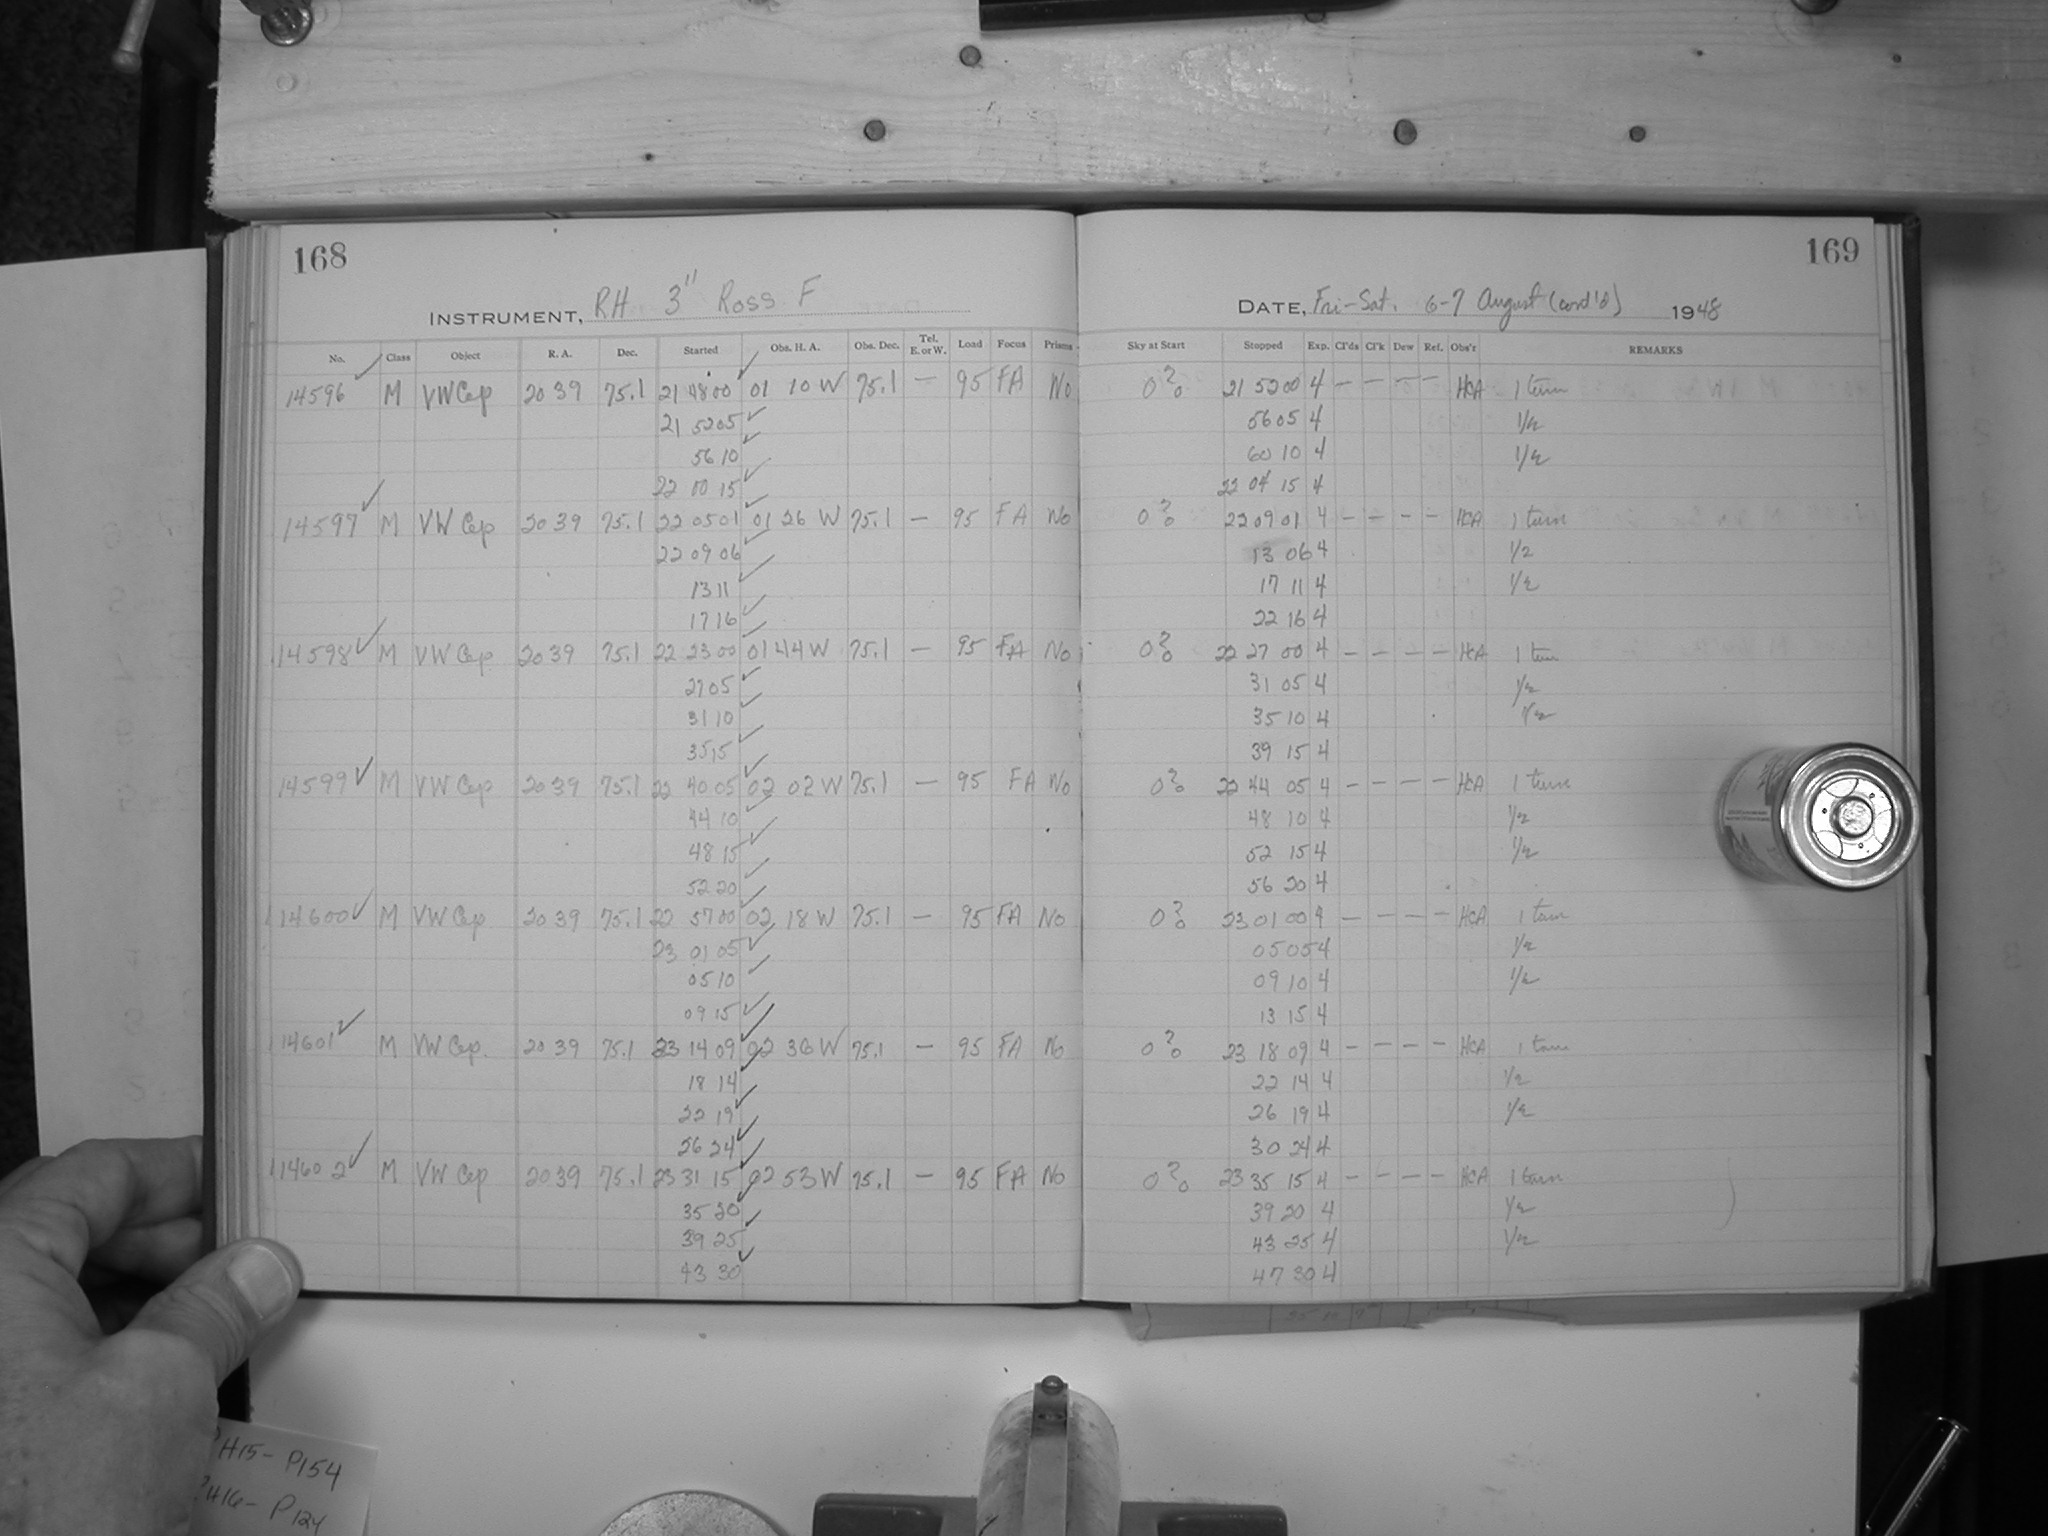 168
INSTRUMENT, RH 3" Ross F
No. Class Object R. A. Dec. Started Obs. H. A. Obs. Dec. Tel. E. or W. Load Focus Prisms
14596 ✓ M VW Cep 20 39 75.1 21 48 00 ✓ 01 10 W 75.1 — 95 FA No
21 52 05 ✓
56 10 ✓
22 00 15 ✓
14597 ✓ M VW Cep 20 39 75.1 22 05 01 ✓ 01 26 W 75.1 — 95 FA No
22 09 06 ✓
13 11 ✓
17 16 ✓
14598 ✓ M VW Cep 20 39 75.1 22 23 00 ✓ 01 44 W 75.1 — 95 FA No
27 05 ✓
31 10 ✓
35 15 ✓
14599 ✓ M VW Cep 20 39 75.1 22 40 05 ✓ 02 02 W 75.1 — 95 FA No
44 10 ✓
48 15 ✓
52 20 ✓
14600 ✓ M VW Cep 20 39 75.1 22 57 00 ✓ 02 18 W 75.1 — 95 FA No
23 01 05 ✓
05 10 ✓
09 15 ✓
14601 ✓ M VW Cep. 20 39 75.1 23 14 09 ✓ 02 36 W 75.1 — 95 FA No
18 14 ✓
22 19 ✓
26 24 ✓
14602 ✓ M VW Cep 20 39 75.1 23 31 15 ✓ 02 53 W 75.1 — 95 FA No
35 20 ✓
39 25 ✓
43 30 ✓
169
DATE, Fri-Sat. 6-7 August (cont'd) 1948
Sky at Start Stopped Exp. Cl'ds Cl'k Dew Ref. Obs'r REMARKS
0 ? 0 21 52 00 4 — — — — HCA 1 turn
56 05 4 1/2
60 10 4 1/2
22 04 15 4
0 ? 0 22 09 01 4 — — — — HCA 1 turn
13 06 4 1/2
17 11 4 1/2
22 16 4
0 ? 0 22 27 00 4 — — — — HCA 1 turn
31 05 4 1/2
35 10 4 1/2
39 15 4
0 ? 0 22 44 05 4 — — — — HCA 1 turn
48 10 4 1/2
52 15 4 1/2
56 20 4
0 ? 0 23 01 00 4 — — — — HCA 1 turn
05 05 4 1/2
09 10 4 1/2
13 15 4
0 ? 0 23 18 09 4 — — — — HCA 1 turn
22 14 4 1/2
26 19 4 1/2
30 24 4
0 ? 0 23 35 15 4 — — — — HCA 1 turn
39 20 4 1/2
43 25 4 1/2
47 30 4
H15- P154
H16- P124